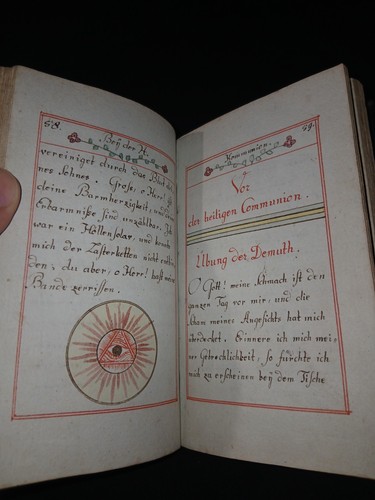 58.
Beÿ der H.
vereiniget durch das Blut
nes Sohnes. Groß, o Herr! ist
deine Barmherzigkeit, und
Erbarmniße sind unzählbar. Ich
war ein Höllensolav, und konnte
mich der Lasterketten nicht entbin
den; du aber, o Herr! hast meine
Bande zerrissen.
59.
Kommunion.
Vor
der heiligen Communion.
Übung der Demuth.
O Gott! meine Schmach ist den
ganzen Tag vor mir, und die
Scham meines Angesichts hat mich
überdecket. Erinnere ich mich mei-
ner Gebrechlichkeit, so fürchte ich
mich zu erscheinen beÿ dem Tische